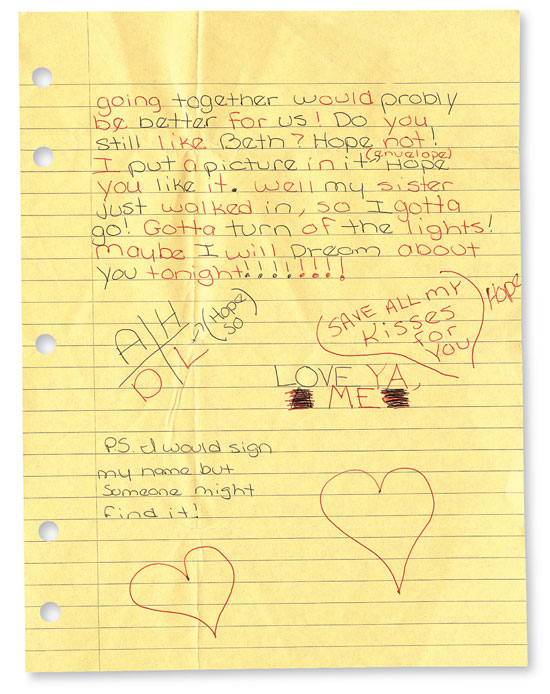 going together would probly
be better for us! Do you
still like Beth? Hope not!
I put a picture in it (envelope) Hope
you like it. well my sister
just walked in, so I gotta
go! Gotta turn of the lights!
maybe I will Dream about
you tonight!!!!!!!!
A H
D L
(Hope
so)
(SAVE ALL MY
Kisses
for
you)
Hope
LOVE YA,
ME
P.S. I would sign
my name but
someone might
find it!